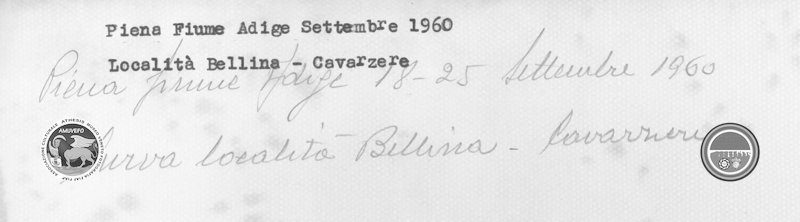 Piena Fiume Adige Settembre 1960
Località Bellina - Cavarzere
Piena fiume Adige 18-25 Settembre 1960
Curva località Bellina - Cavarzere
AMUVEFO